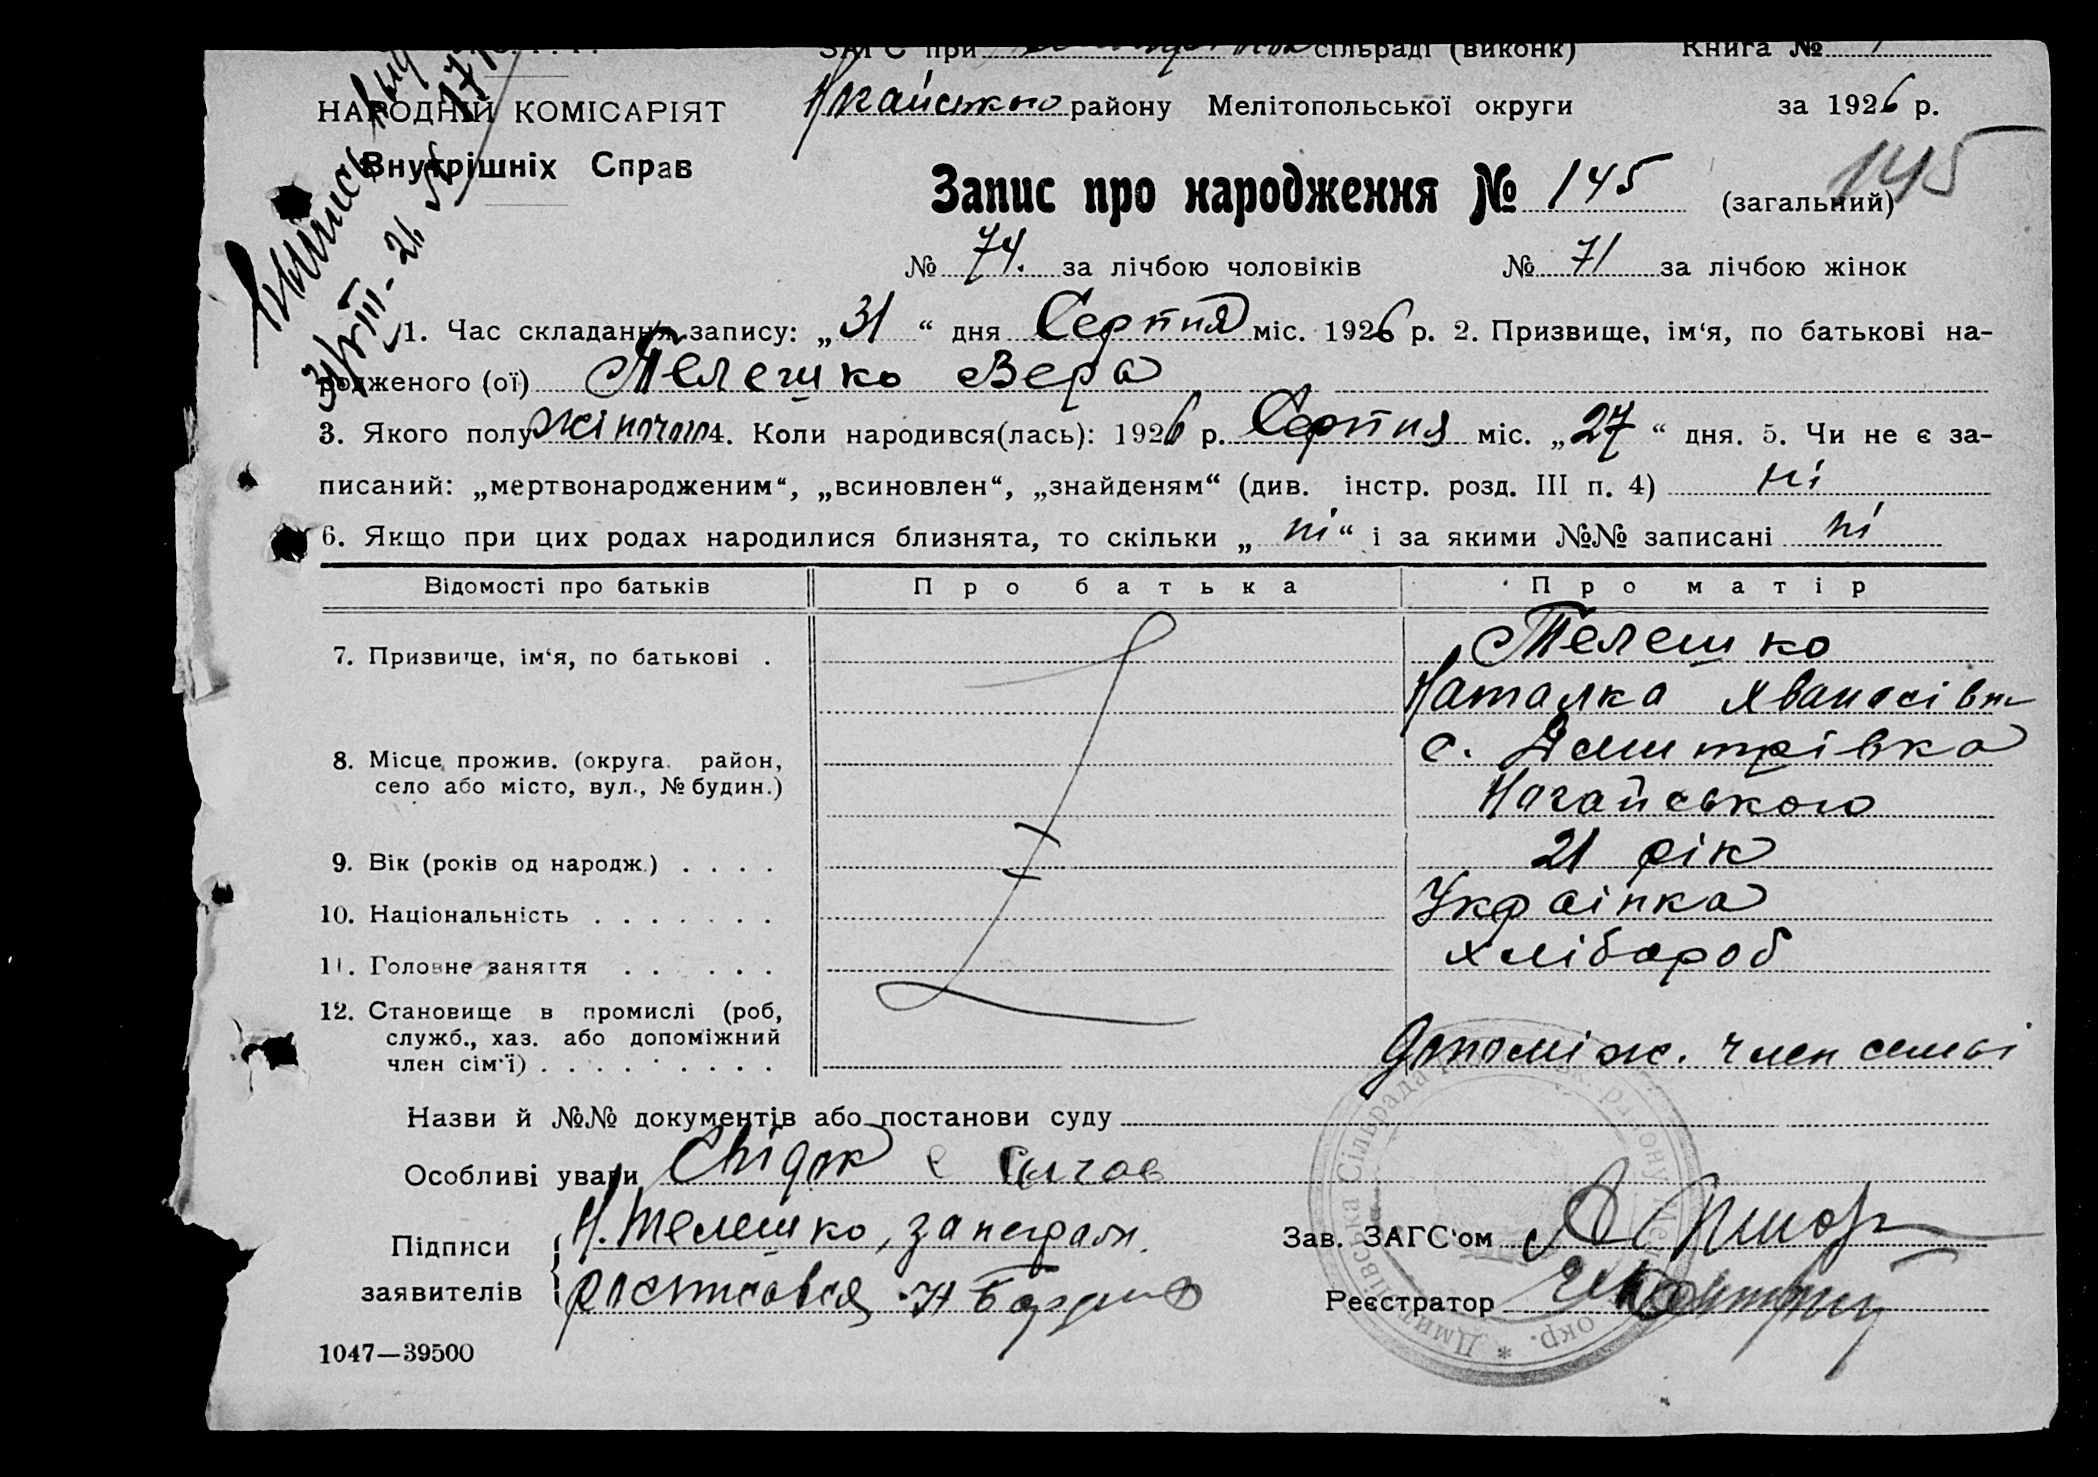 ЗАГС при сільраді (виконк) Книга №
НАРОДНІЙ КОМІСАРІЯТ
Внутрішніх Справ
району Мелітопольської округи за 1926 р.
Запис про народження № 145 (загальний) 145
№ 74. за лічбою чоловіків № 71 за лічбою жінок
1. Час складання запису: „31“ дня Серпня міс. 1926 р. 2. Призвище, ім‘я, по батькові на-
родженого (ої) Телешко Вера
3. Якого полу жіночого 4. Коли народився(лась): 1926 р. Серпня міс. „27“ дня. 5. Чи не є за-
писаний: „мертвонародженим“, „всиновлен“, „знайденям“ (див. інстр. розд. III п. 4) ні
6. Якщо при цих родах народилися близнята, то скільки „ні“ і за якими №№ записані ні
Відомості про батьків Про батька Про матір
7. Призвище, ім‘я, по батькові . Телешко
Наталка
8. Місце прожив. (округа. район, село або місто, вул., № будин.) с. Дмитрівка
Нагайського
9. Вік (років од народж.) . . . . 21 рік
10. Національність . . . . . . . Українка
11. Головне заняття . . . . . . хлібороб
12. Становище в промислі (роб,
служб., хаз. або допоміжний
член сім‘ї) . . . . . . . . . допоміж. член семьі
Назви й №№ документів або постанови суду
Особливі уваги
Підписи
заявителів
Н. Телешко, за неграм.
Зав. ЗАГС‘ом
Реєстратор
1047—39500